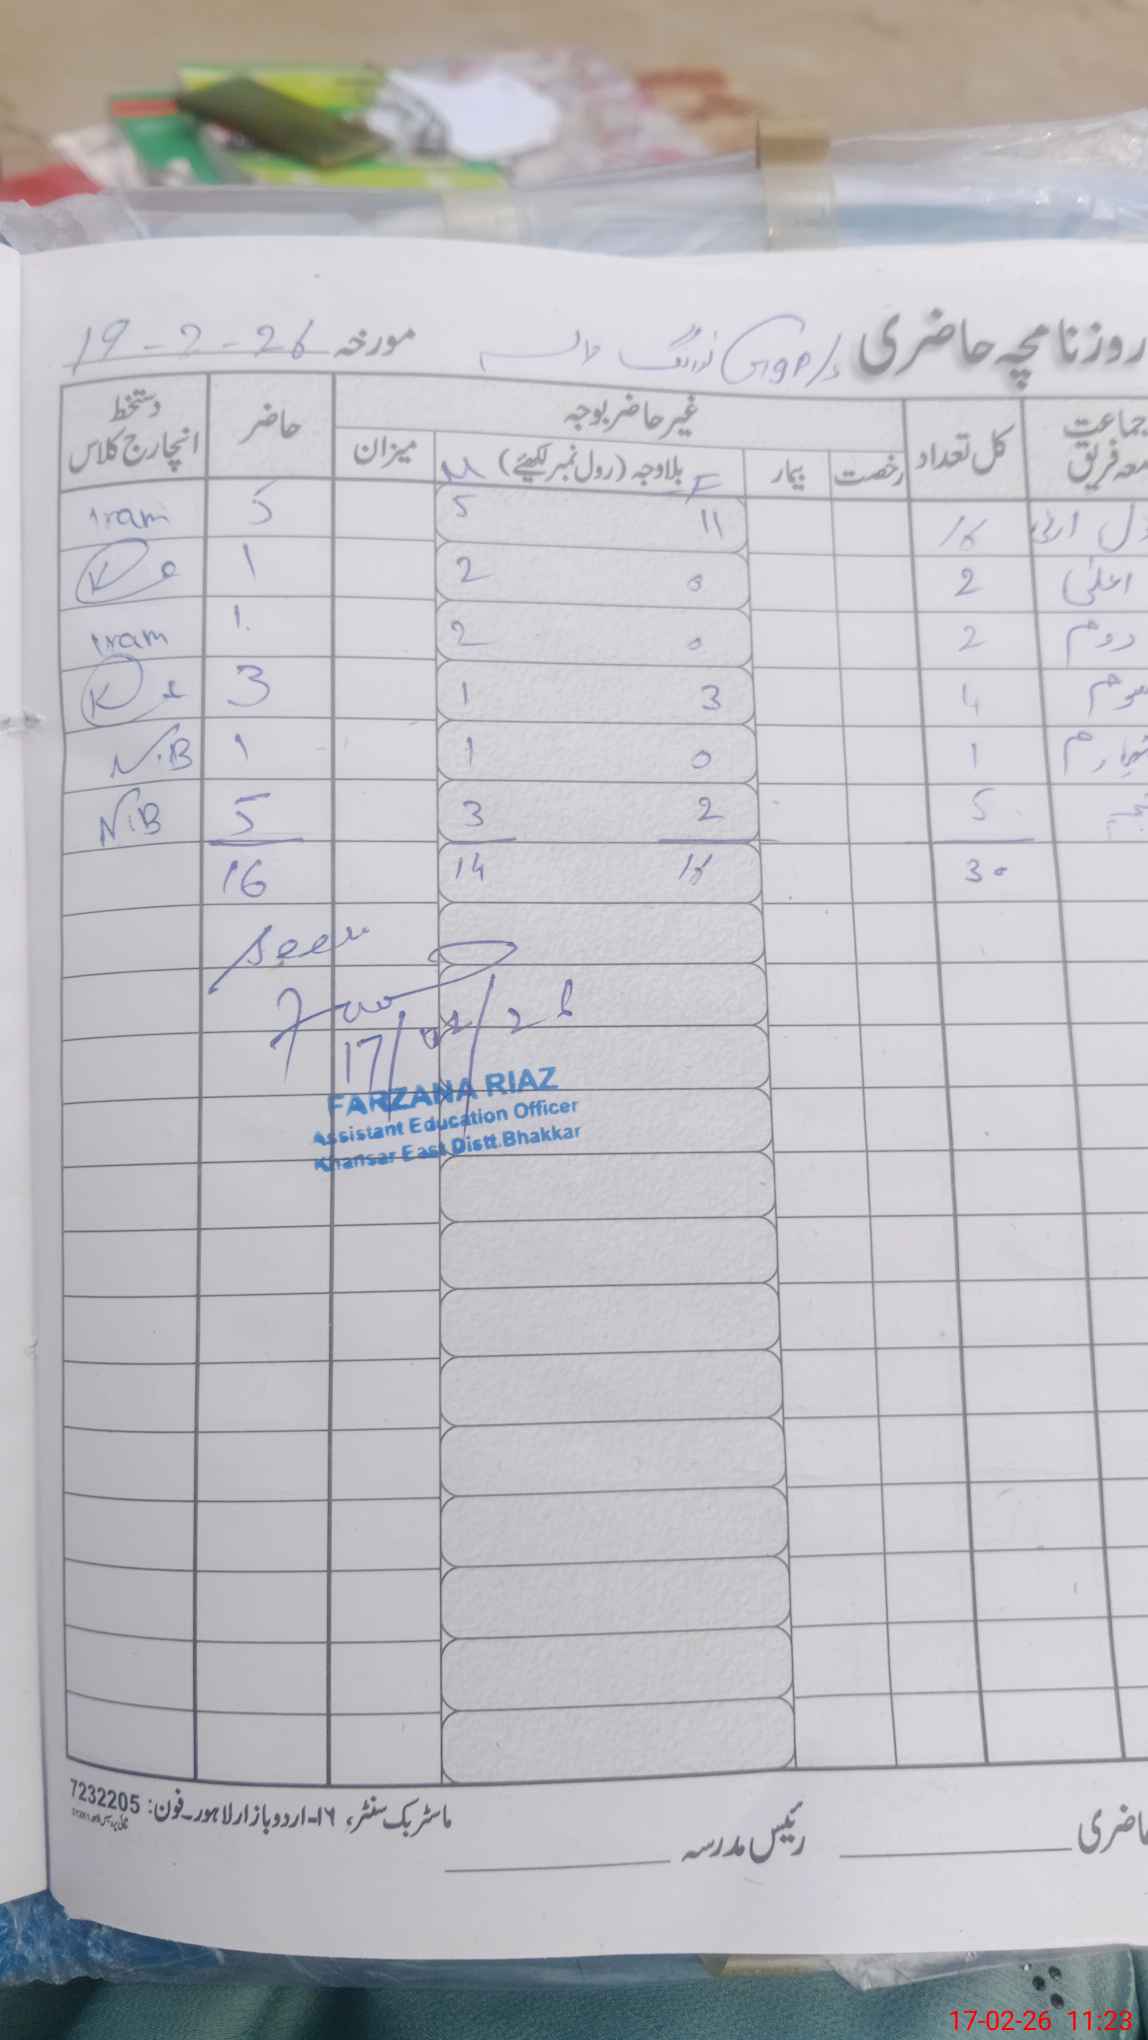 روزنامچہ حاضری GGP/S نورنگ مورخہ 19-2-26
جماعت معہ فریق کل تعداد غیر حاضر بوجہ حاضر دستخط انچارج کلاس
رخصت بیمار بلاوجہ (رول نمبر لکھیئے) میزان
F M
16 11 5 5 Iram
اعلیٰ 2 0 2 1
دوم 2 0 2 1. Iram
سوم 4 3 1 3
چہارم 1 0 1 1 N.B
5 2 3 5 N.B
30 16 14 16
Seen
17/02/26
FARZANA RIAZ
Assistant Education Officer
Khansar East Distt.Bhakkar
حاضری رئیس مدرسہ
ماسٹر بک سنٹر، ۱۶-اردو بازار لاہور۔ فون: 7232205
17-02-26 11:23